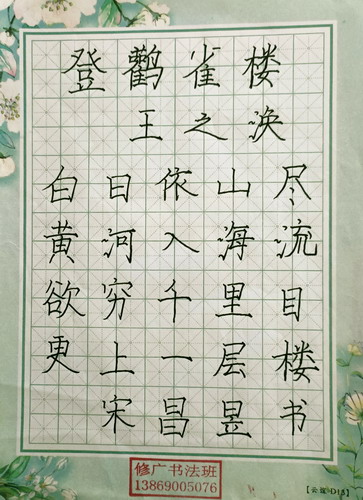 登鹳雀楼
王之涣
白日依山尽
黄河入海流
欲穷千里目
更上一层楼
宋昌昱书
修广书法班
13869005076